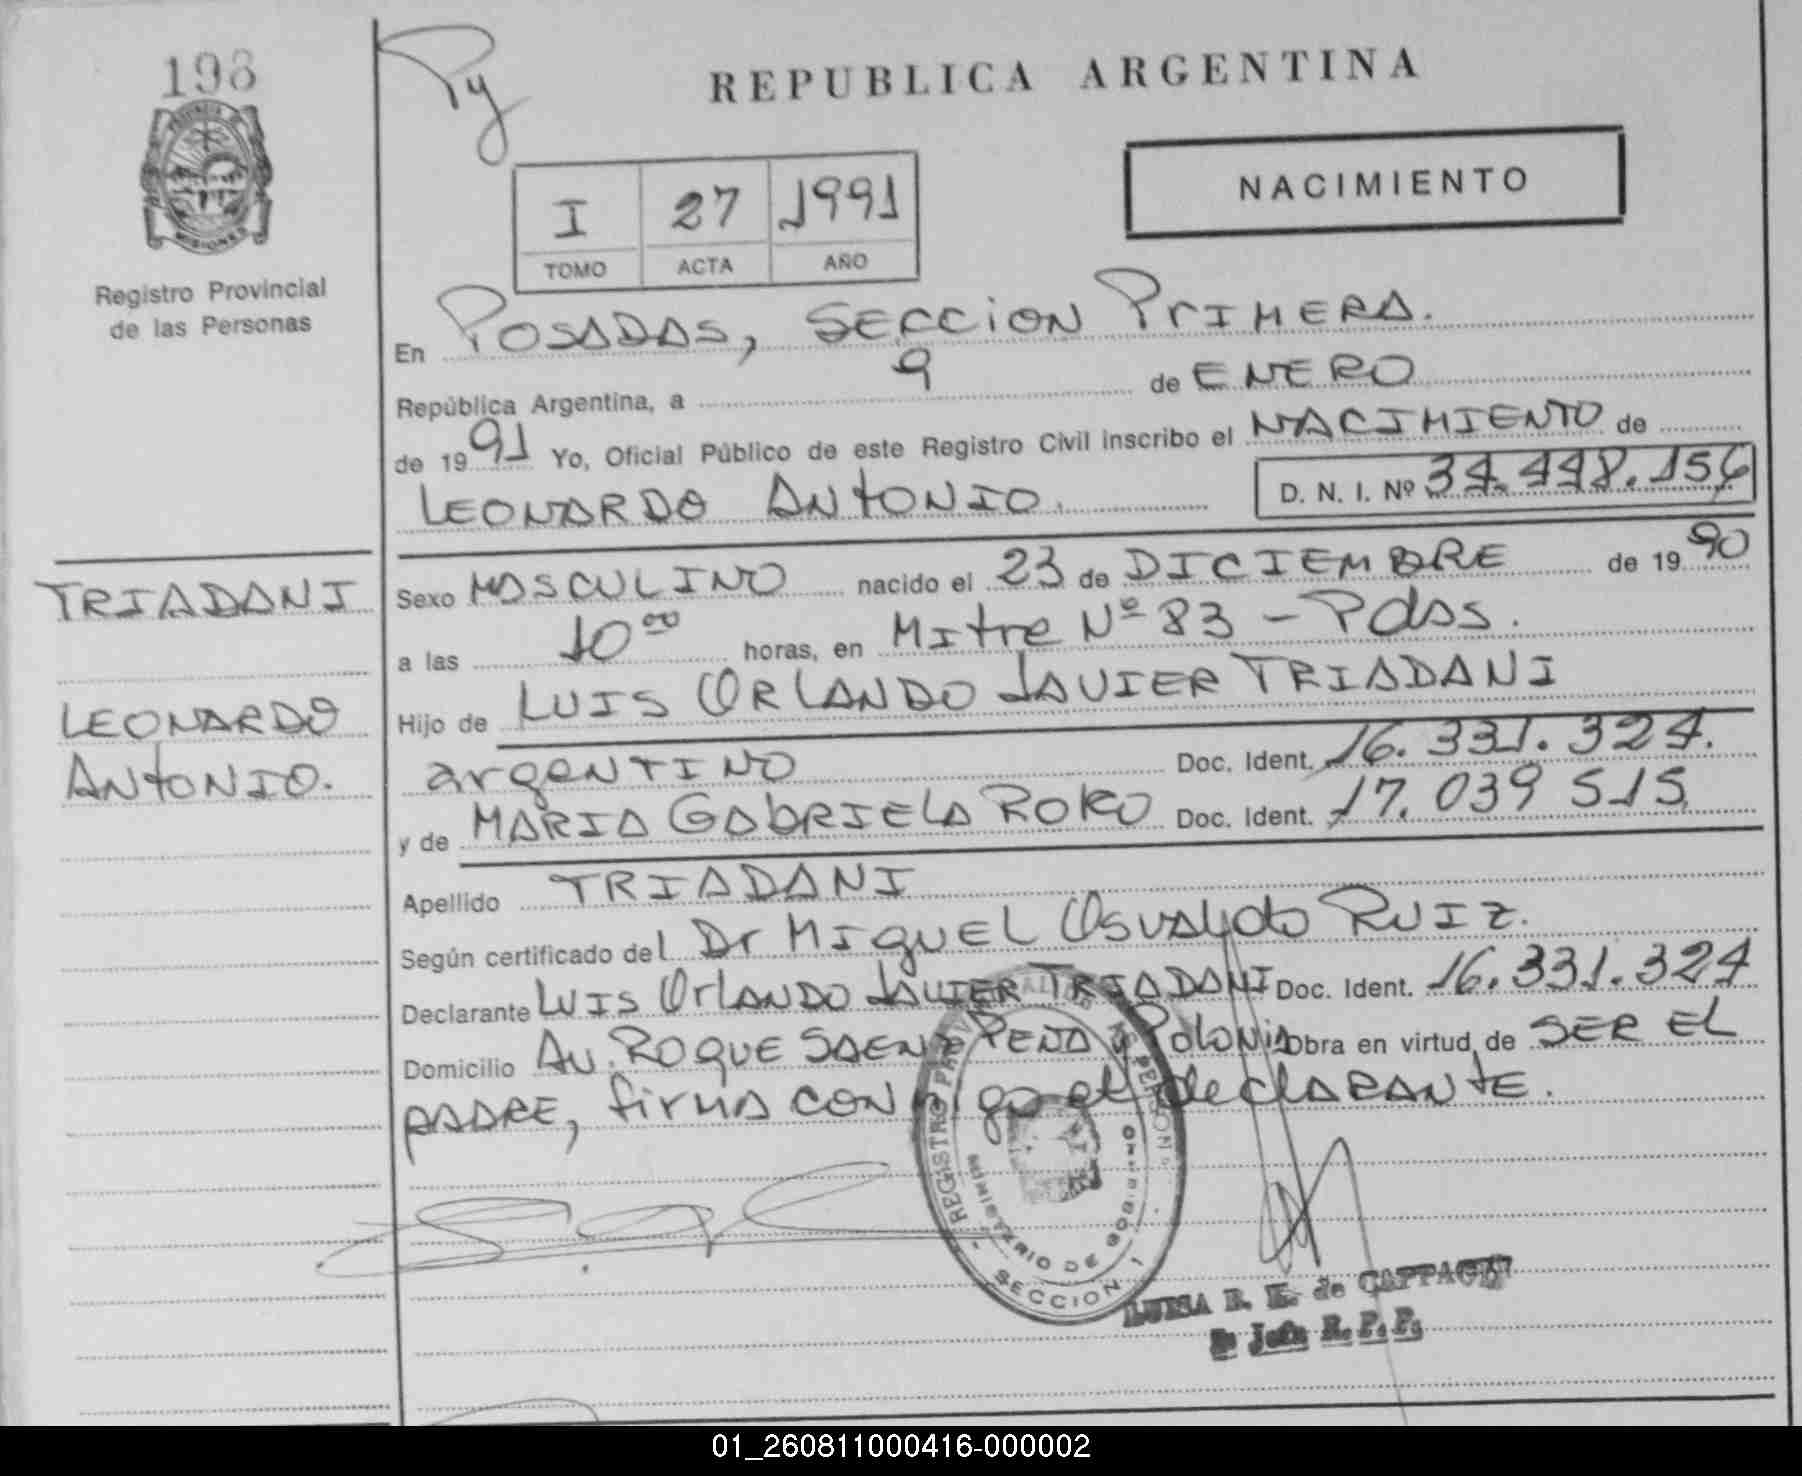 198
MISIONES
Registro Provincial
de las Personas
Py
REPUBLICA ARGENTINA
NACIMIENTO
I 27 1991
TOMO ACTA AÑO
En POSADAS, SECCION PRIMERA.
República Argentina, a 9 de ENERO
de 1991 Yo, Oficial Público de este Registro Civil inscribo el NACIMIENTO de
LEONARDO ANTONIO. D. N. I. Nº
TRIADANI
LEONARDO
ANTONIO.
Sexo MASCULINO nacido el 23 de DICIEMBRE de 1990
a las 10 00 horas, en Mitre Nº 83 - Pdas.
Hijo de LUIS ORLANDO JAVIER TRIADANI
argentino Doc. Ident. 16.331.324.
y de MARIA GABRIELA ROKO Doc. Ident. 17.039 515
Apellido TRIADANI
Según certificado del Dr MIGUEL OSVALDO RUIZ.
Declarante LUIS ORLANDO JAVIER TRIADANI Doc. Ident. 16.331.324
Domicilio AV. ROQUE SAENZ PEÑA y POLONIA Obra en virtud de SER EL
PADRE, firma conmigo el declarante.
REGISTRO PROVINCIAL DE LAS PERSONAS
MINISTERIO DE GOBIERNO
SECCION 1
LUISA de
Jefa R. P. P.
01_260811000416-000002